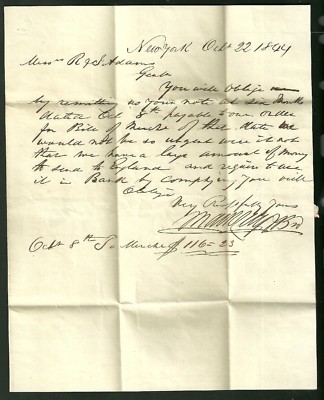 New York Oct 22 1844
Mess R & S Adams
Gent
You will Oblige
by remitting us your note at Six Months
dated Oct 8th payable to our order
for Bill of Merche of that date we
would not be so urgent were it not
that we have a large amount of money
to send to England and require to use
it in Bank by Complying you will
Oblige
Very Respectfully Yours
& Bro
Octr 8th To Merche $ 116=23